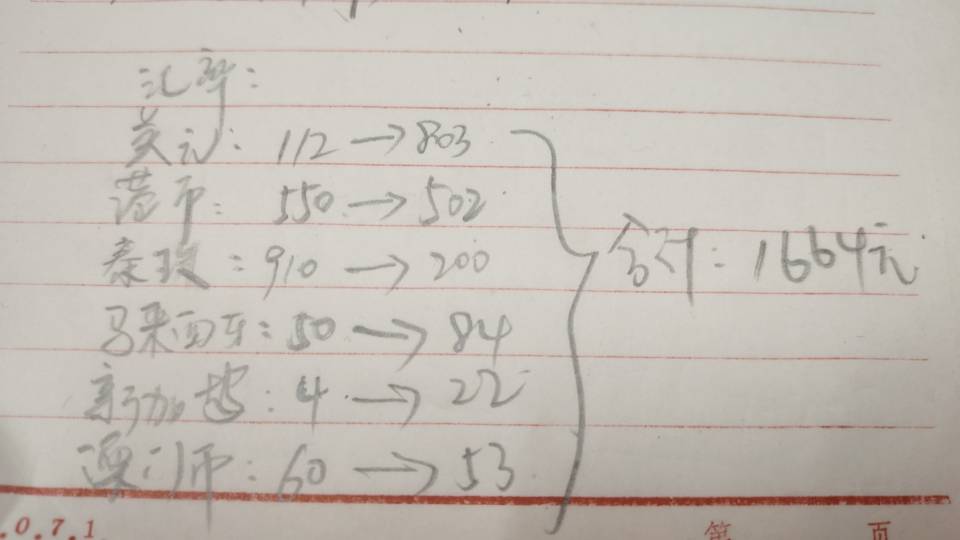 汇率:
美元: 112 → 803
港币: 550 → 502
泰铢: 910 → 200
马来西牙: 50 → 84
新加坡: 4 → 22
澳门币: 60 → 53
合计: 1664元
.0.7.1
第 页